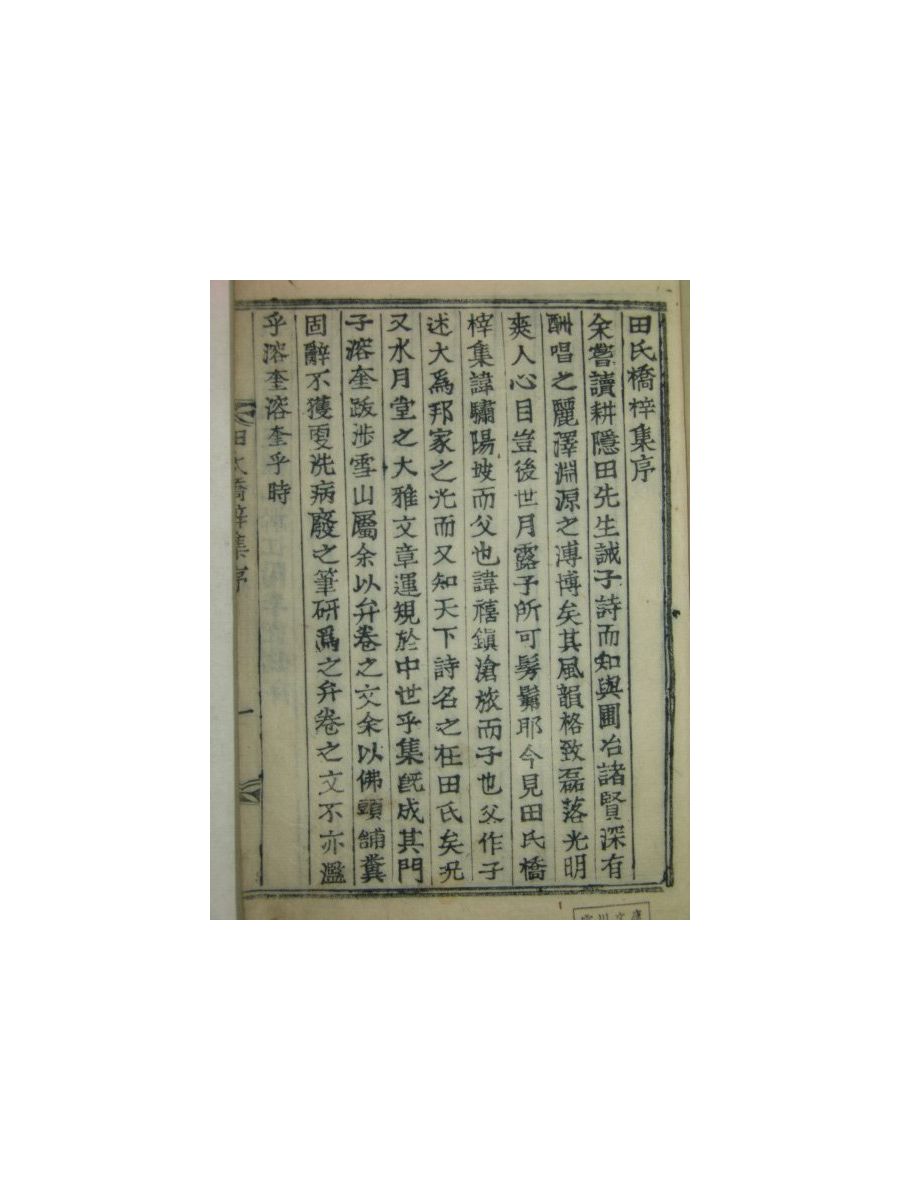 田氏橋梓集序
余嘗讀耕隱田先生誡子詩而知與圃冶諸賢深有
酬唱之麗澤淵源之溥博矣其風韻格致磊落光明
爽人心目豈後世月露予所可髣髴耶今見田氏橋
梓集諱驌陽坡而父也諱禧鎭滄旅而子也父作子
述大爲邦家之光而又知天下詩名之在田氏矣況
又水月堂之大雅文章運規於中世乎集旣成其門
子溶奎跋涉雪山屬余以弁卷之文余以佛頭鋪糞
固辭不獲更洗病廢之筆研爲之弁卷之文不亦濫
乎溶奎溶奎乎時
田氏橋梓集序
一
文庫